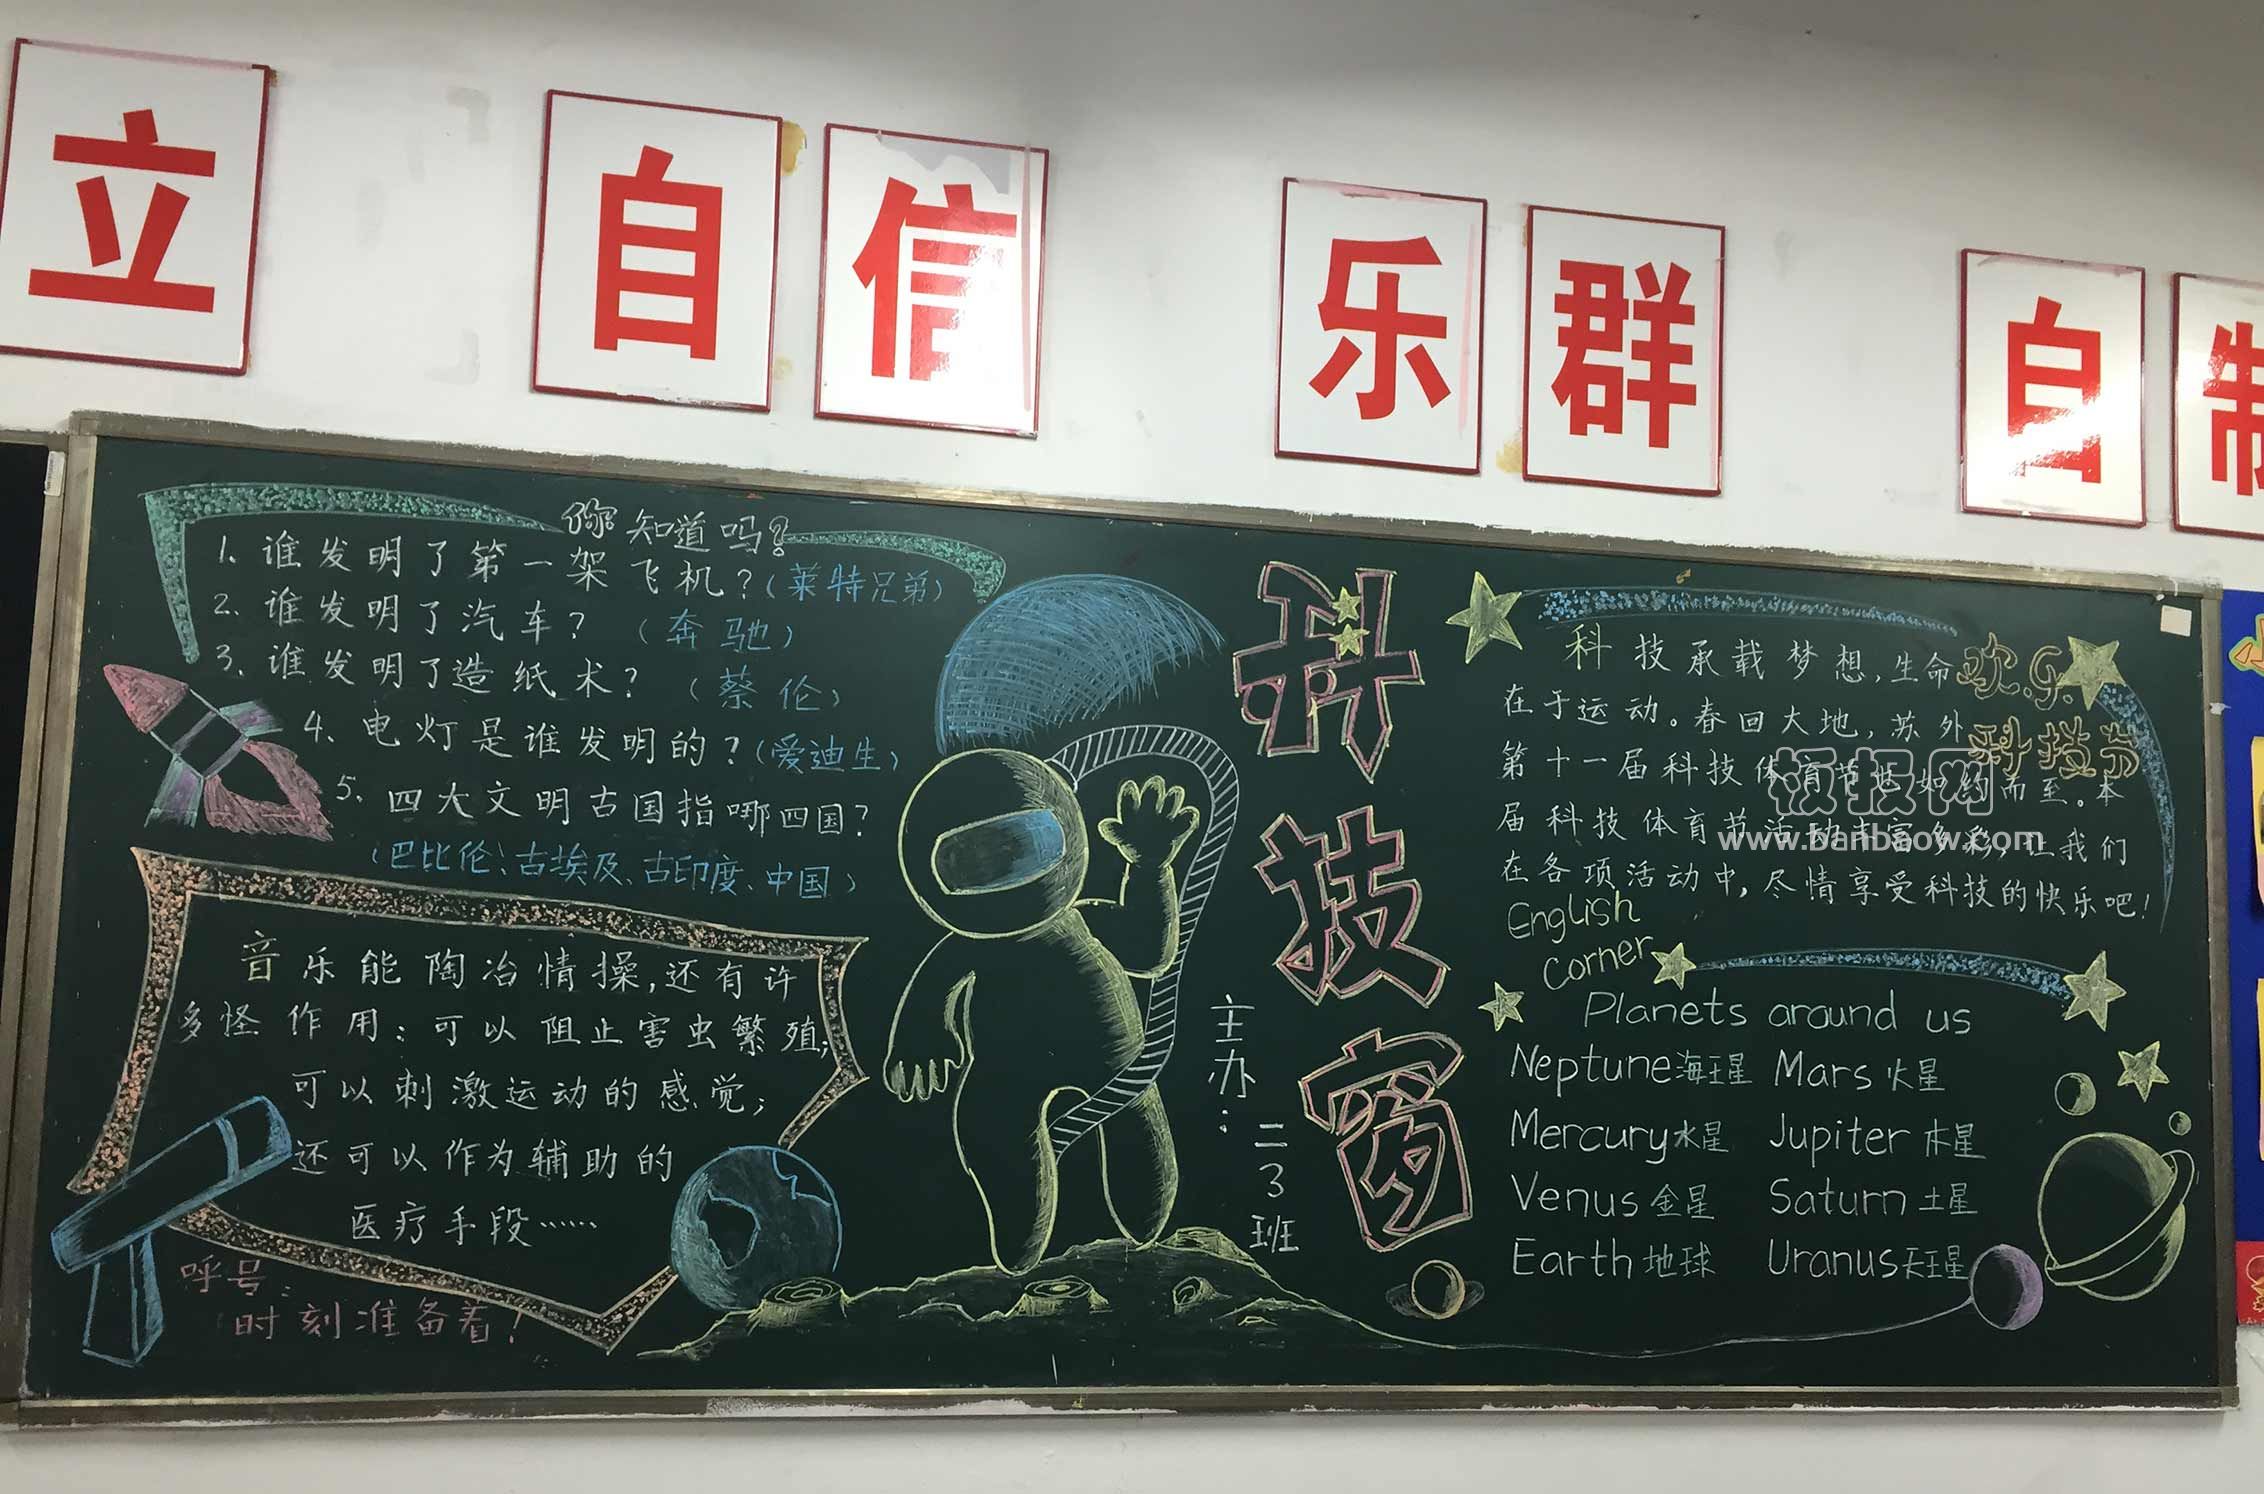 立 自信 乐群 自制
你知道吗?
1. 谁发明了第一架飞机?(莱特兄弟)
2. 谁发明了汽车? (奔驰)
3. 谁发明了造纸术? (蔡伦)
4. 电灯是谁发明的?(爱迪生)
5. 四大文明古国指哪四国?
(巴比伦、古埃及、古印度、中国)
音乐能陶冶情操,还有许
多怪作用:可以阻止害虫繁殖;
可以刺激运动的感觉;
还可以作为辅助的
医疗手段……
呼号:
时刻准备着!
科技窗
主办:二3班
欢乐
科技节
科技承载梦想,生命
在于运动。春回大地,苏外
第十一届科技体育节也如约而至。本
届科技体育节活动丰富多彩,让我们
在各项活动中,尽情享受科技的快乐吧!
板报网
www.banbaow.com
English
Corner
Planets around us
Neptune海王星 Mars火星
Mercury水星 Jupiter木星
Venus金星 Saturn土星
Earth地球 Uranus天王星